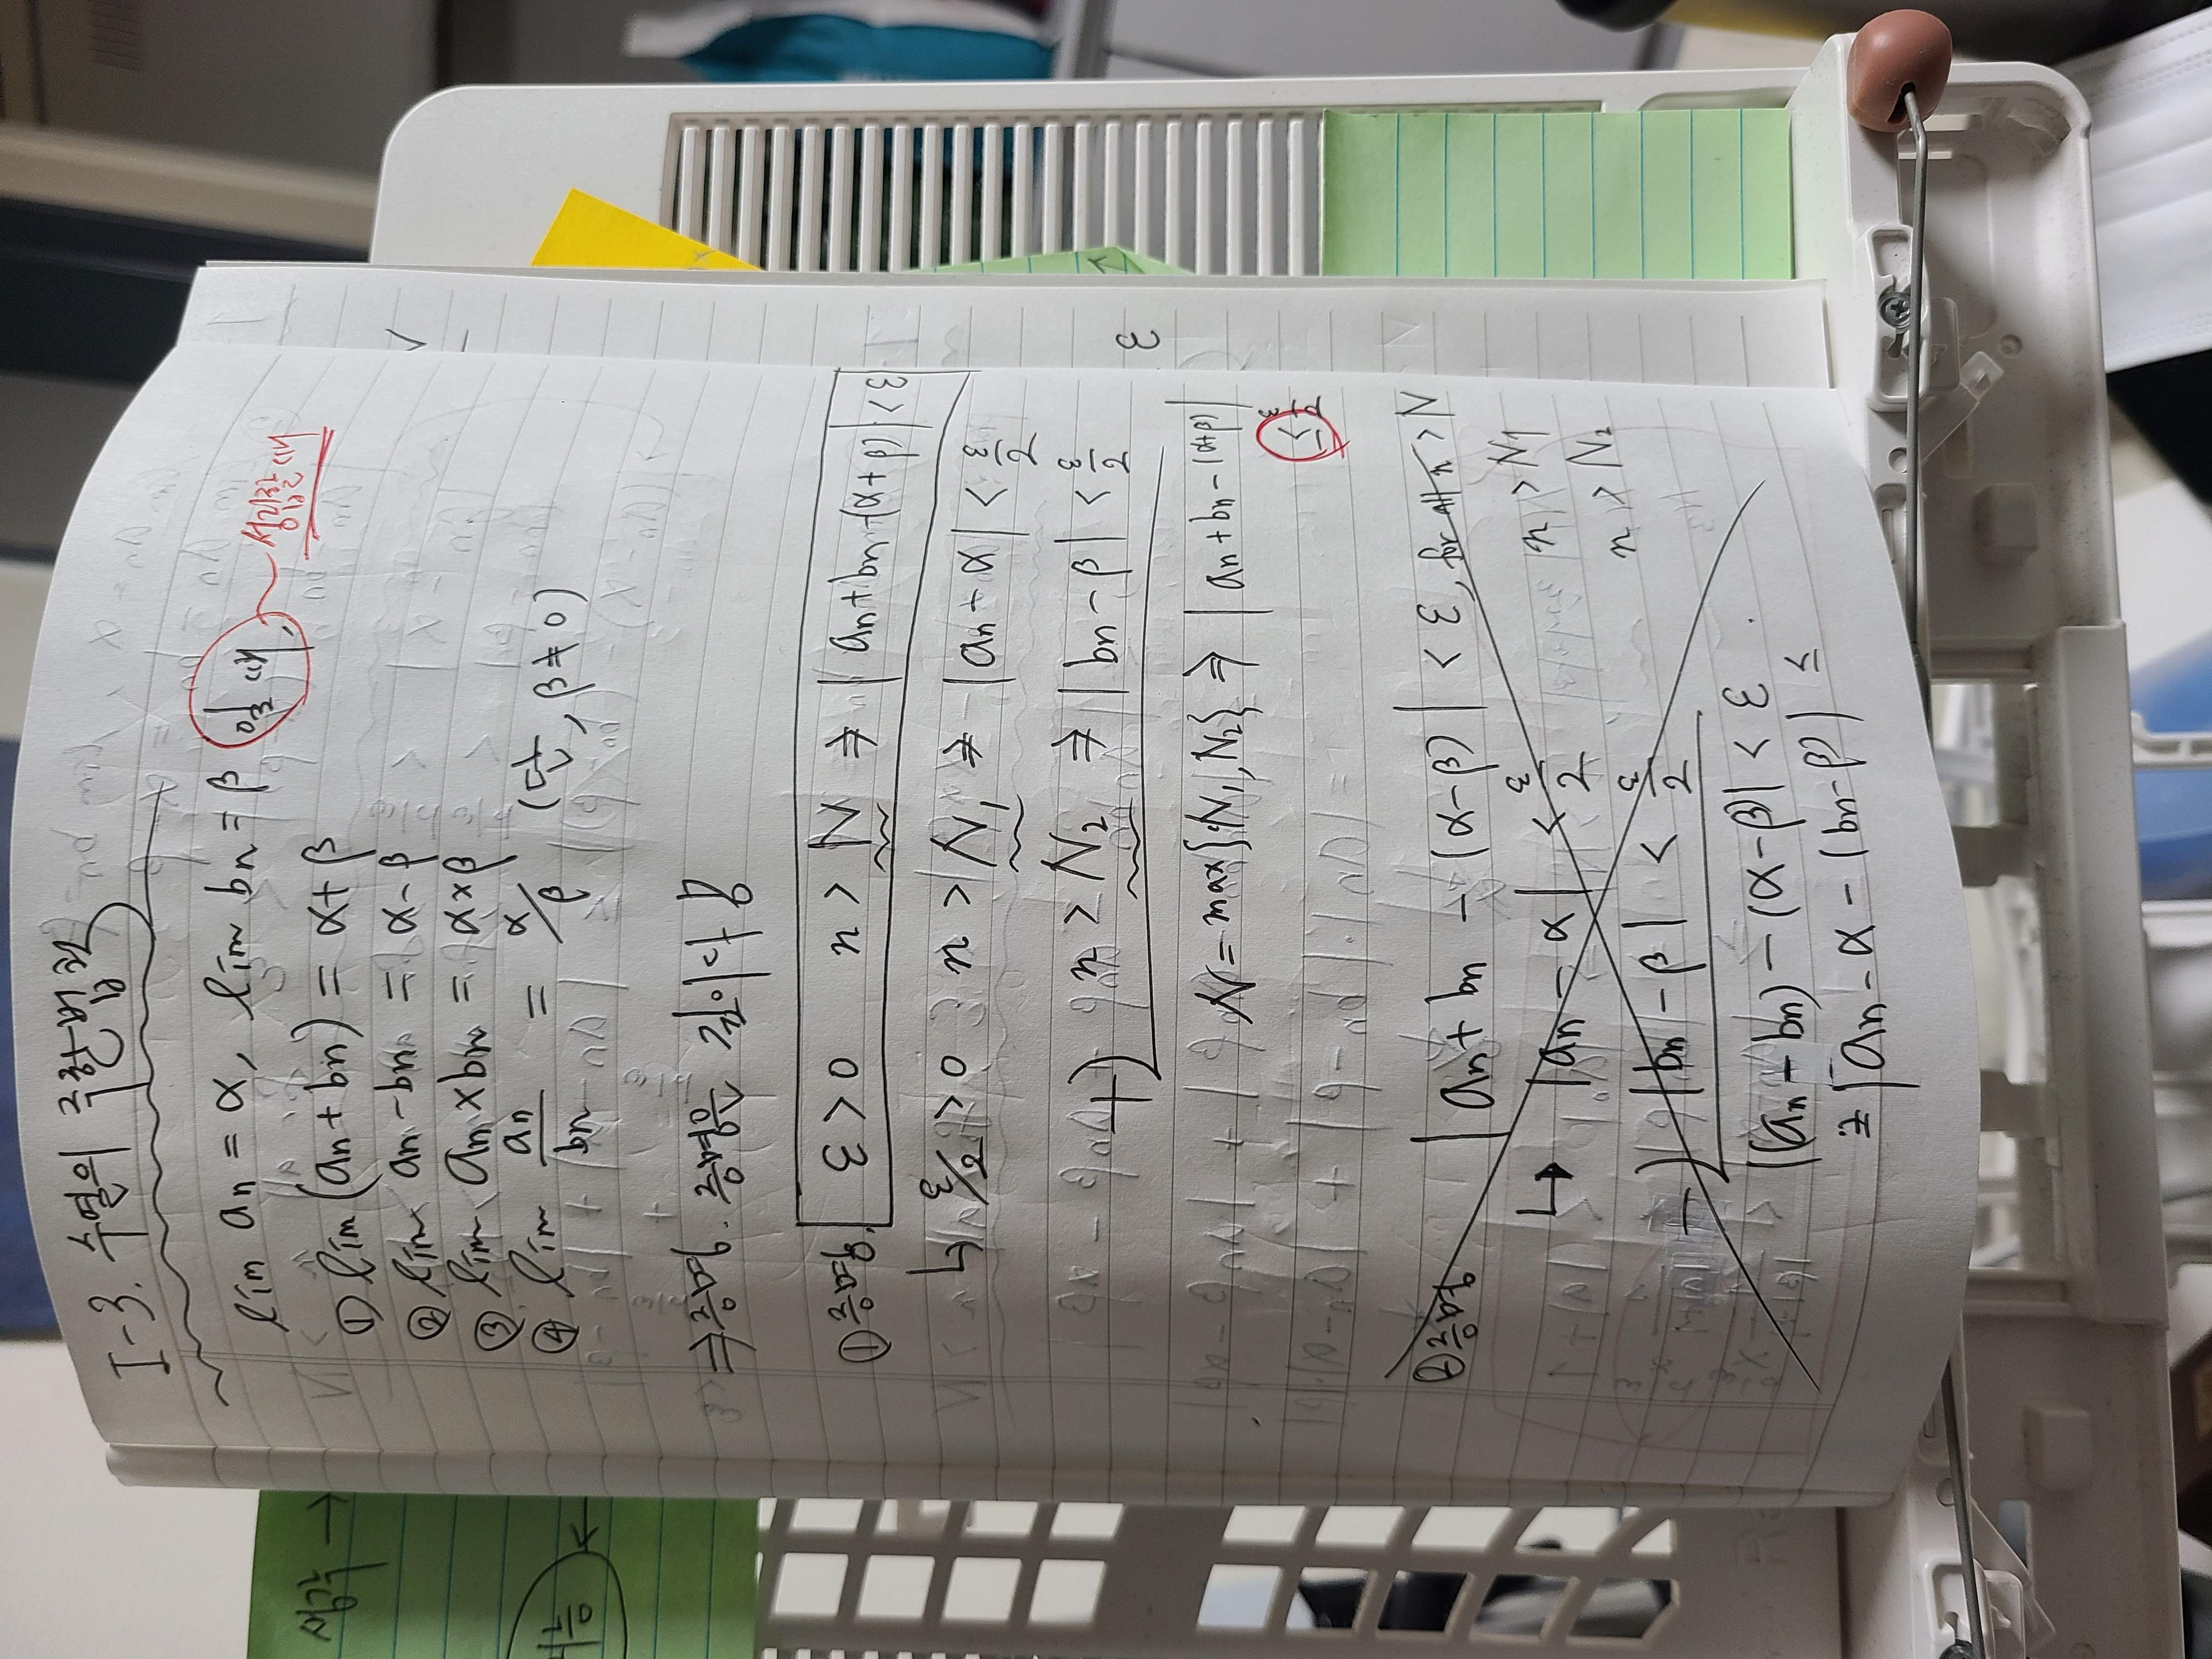 I-3. 수열의 극한법칙
lim an = α, lim bn = β 일 때, 성립할 때
① lim (an + bn) = α + β
② lim an - bn = α - β
③ lim an × bn = α × β
④ lim an/bn = α/β (단, β ≠ 0)
⇒ 증명. 증명은 깊이다
① 증명. ε > 0 n > N ⇒ | an + bn - (α + β) | < ε
↳ ε/2 > 0 n > N₁ ⇒ | an - α | < ε/2
+) n > N₂ ⇒ | bn - β | < ε/2
N = max{N₁, N₂} ⇒ | an + bn - (α+β) |
≤ ε/2
② 증명 | an + bn - (α - β) | < ε, for all n > N
↳ | an - α | < ε/2 n > N1
-) | bn - β | < ε/2 n > N₂
|(an - bn) - (α - β)| < ε
| an - α - (bn - β) | ≤
생각 →
ε